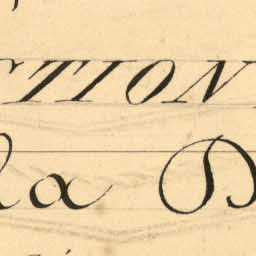 CTION
la D